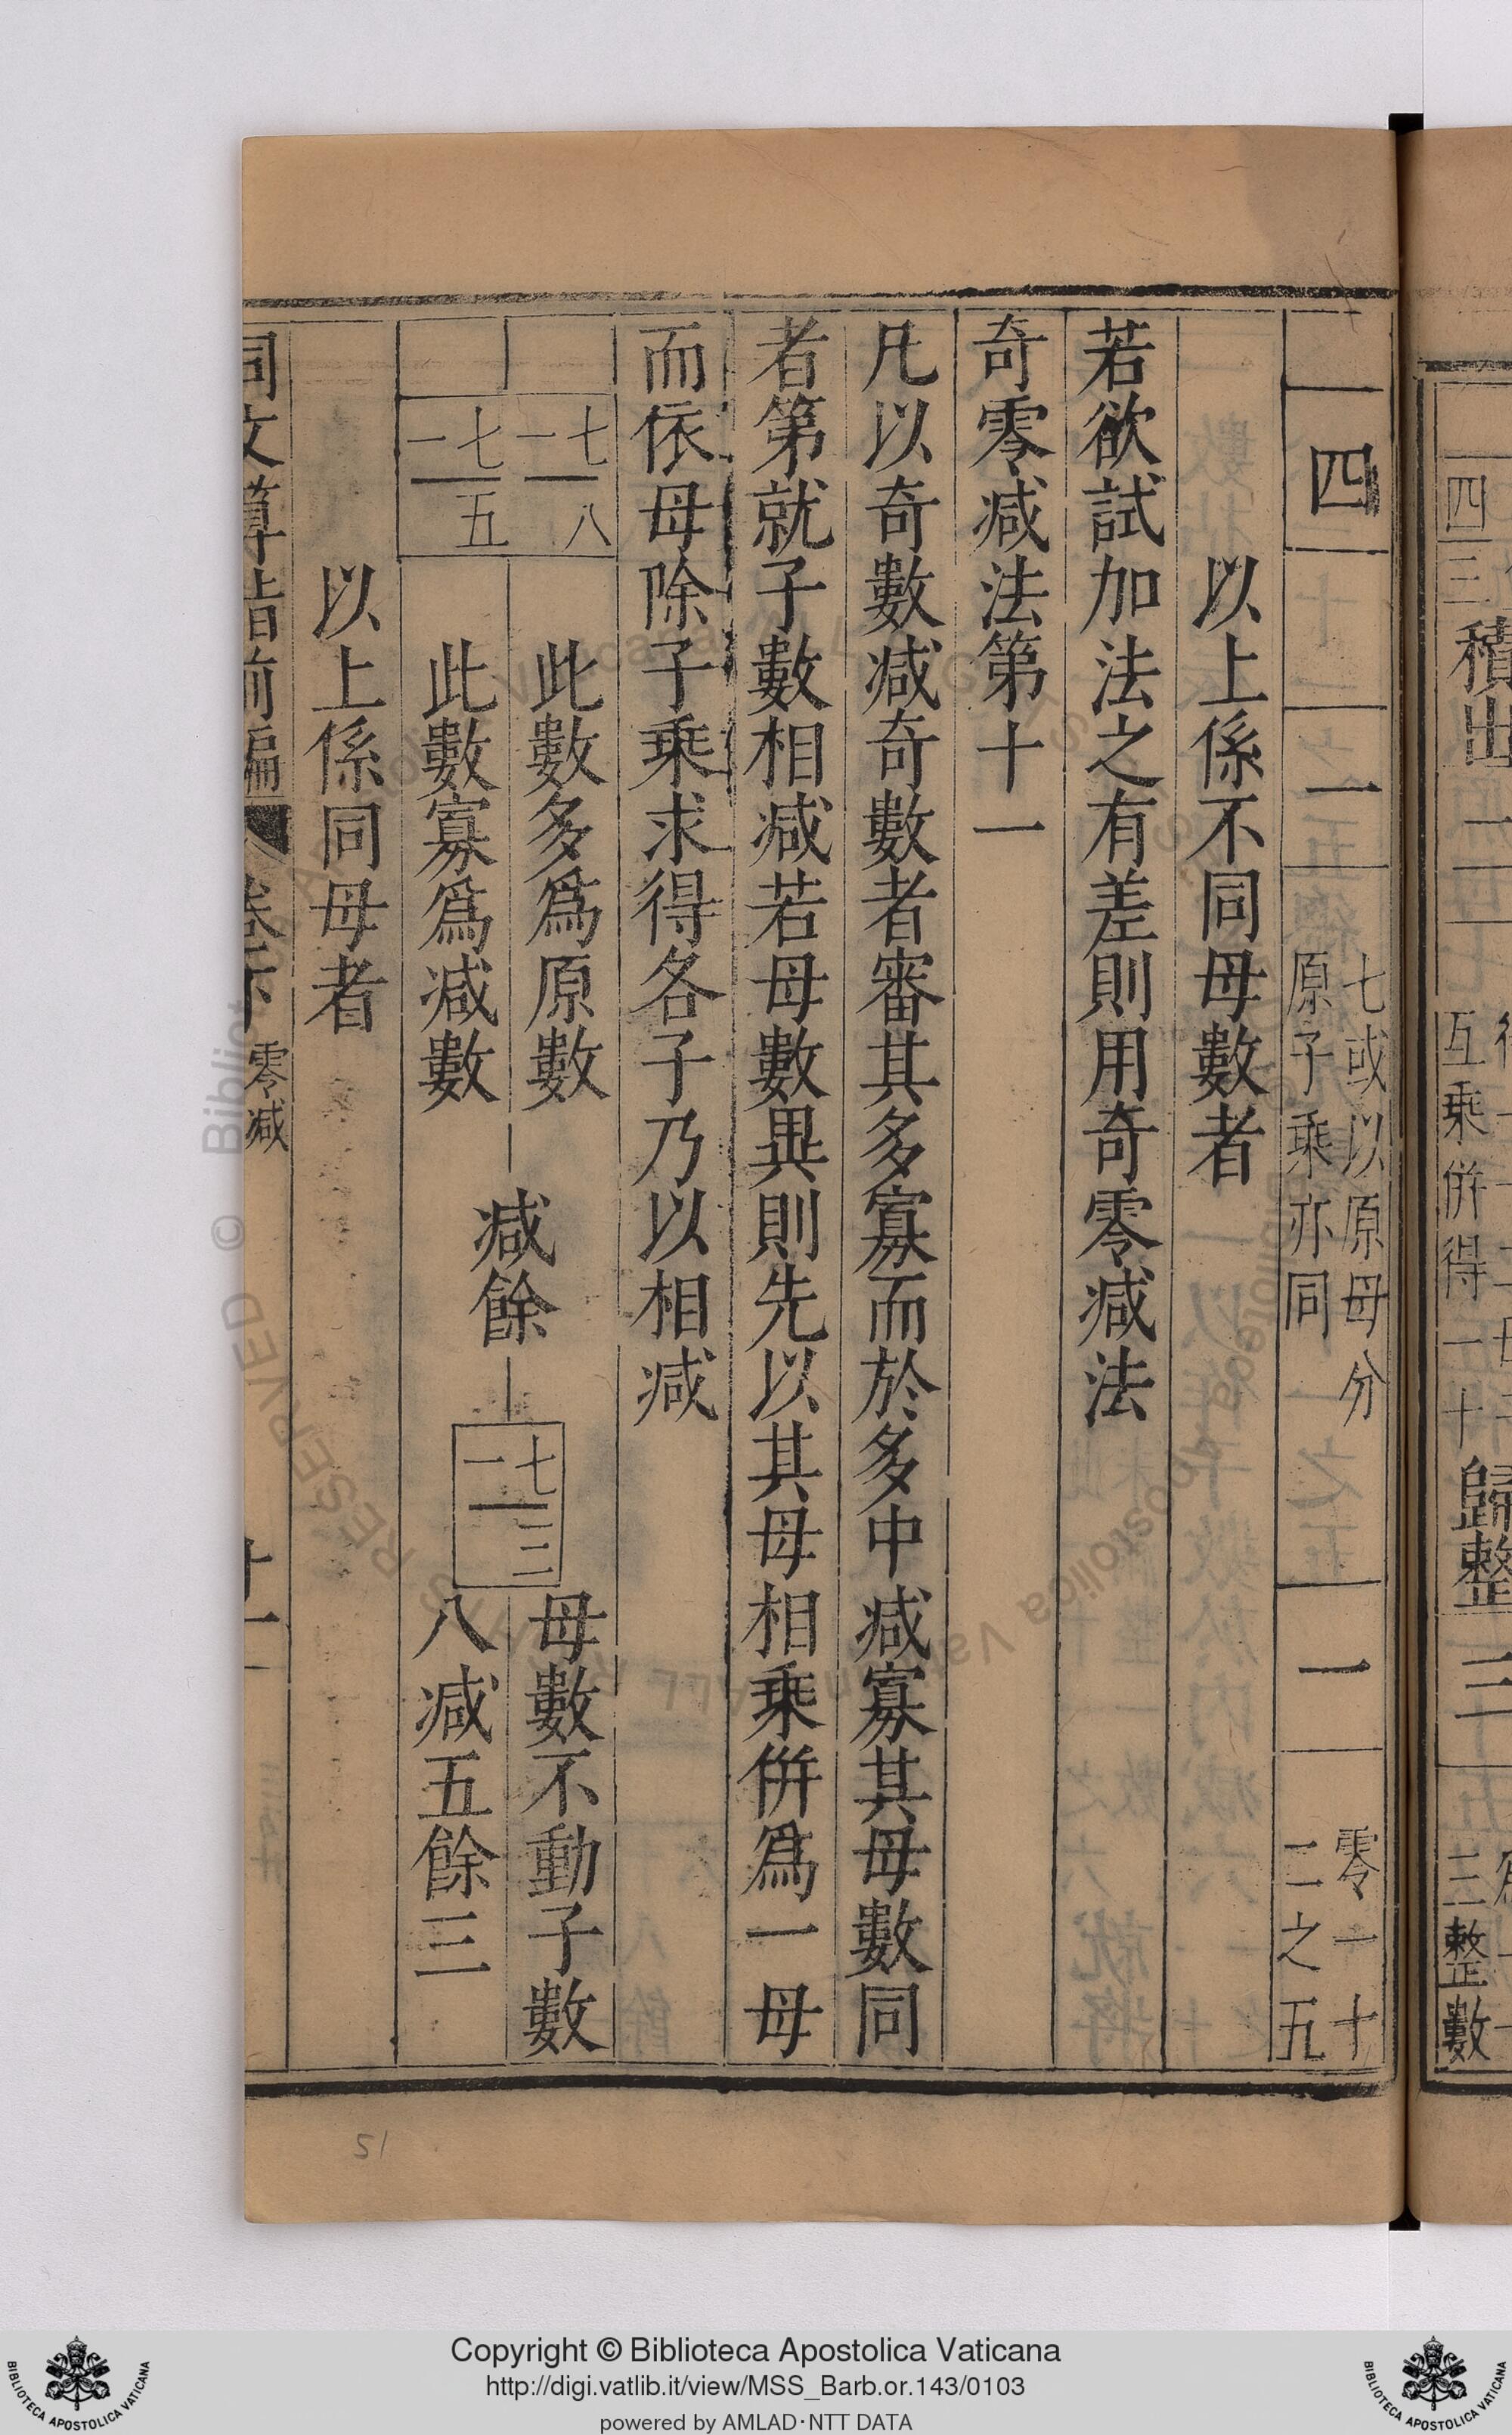 四　一　七或以原母分
原子乘亦同　一　零一十
二之五
以上係不同母數者
若欲試加法之有差則用奇零減法
奇零減法第十一
凡以奇數減奇數者審其多寡而於多中減寡其母數同
者第就子數相減若母數異則先以其母相乘併爲一母
而依母除子乘求得各子乃以相減
一七　八　此數多爲原數
一七　五　此數寡爲減數
減餘
一七　三
母數不動子數
八減五餘三
以上係同母者
同文算指前編　卷下　零減
四三　積出　互乘併得一十　歸整　三整數
51
Copyright © Biblioteca Apostolica Vaticana
http://digi.vatlib.it/view/MSS_Barb.or.143/0103
powered by AMLAD·NTT DATA
BIBLIOTECA APOSTOLICA VATICANA
BIBLIOTECA APOSTOLICA VATICANA